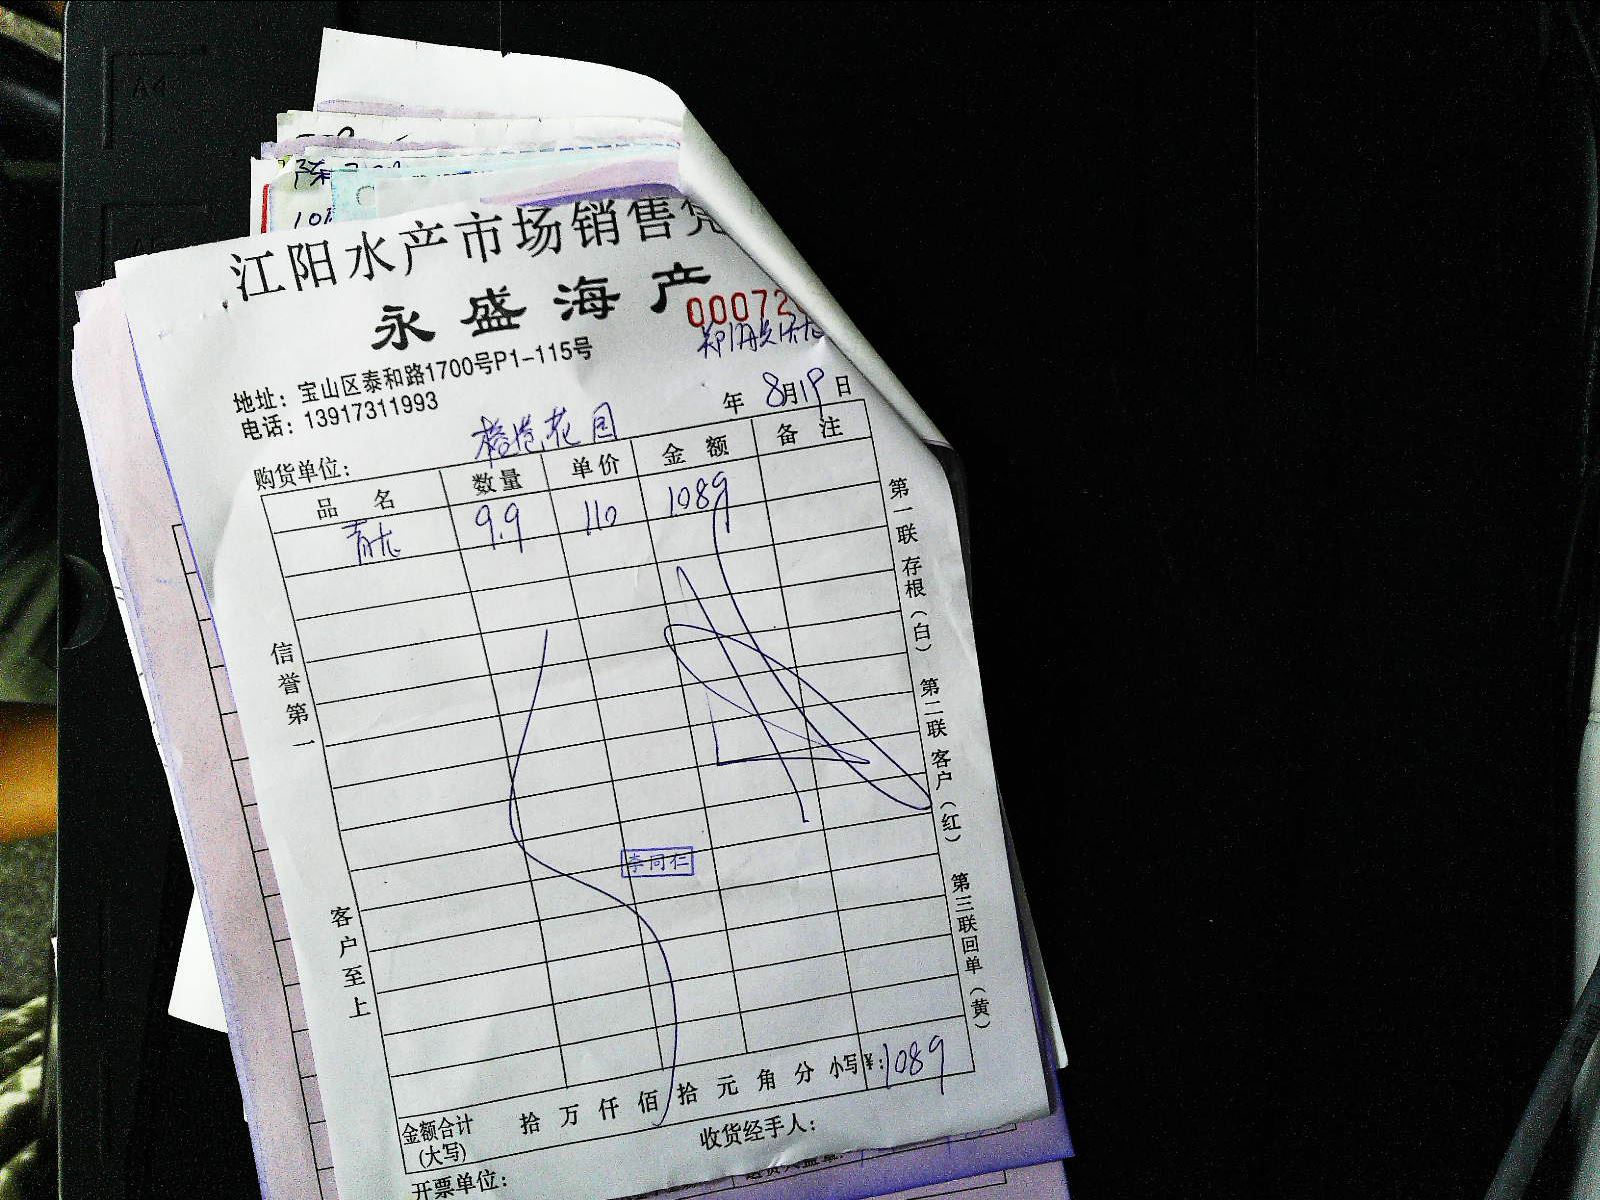 江阳水产市场销售凭
永盛海产
000072
地址：宝山区泰和路1700号P1-115号
电话：13917311993
年 8月19日
购货单位： 花园
品名 数量 单价 金额 备注
青龙 9.9 110 1089
信誉第一
客户至上
李同仁
第一联 存根（白） 第二联 客户（红） 第三联 回单（黄）
金额合计（大写） 拾 万 仟 佰 拾 元 角 分 小写¥：1089
收货经手人：
开票单位：
A4
陈